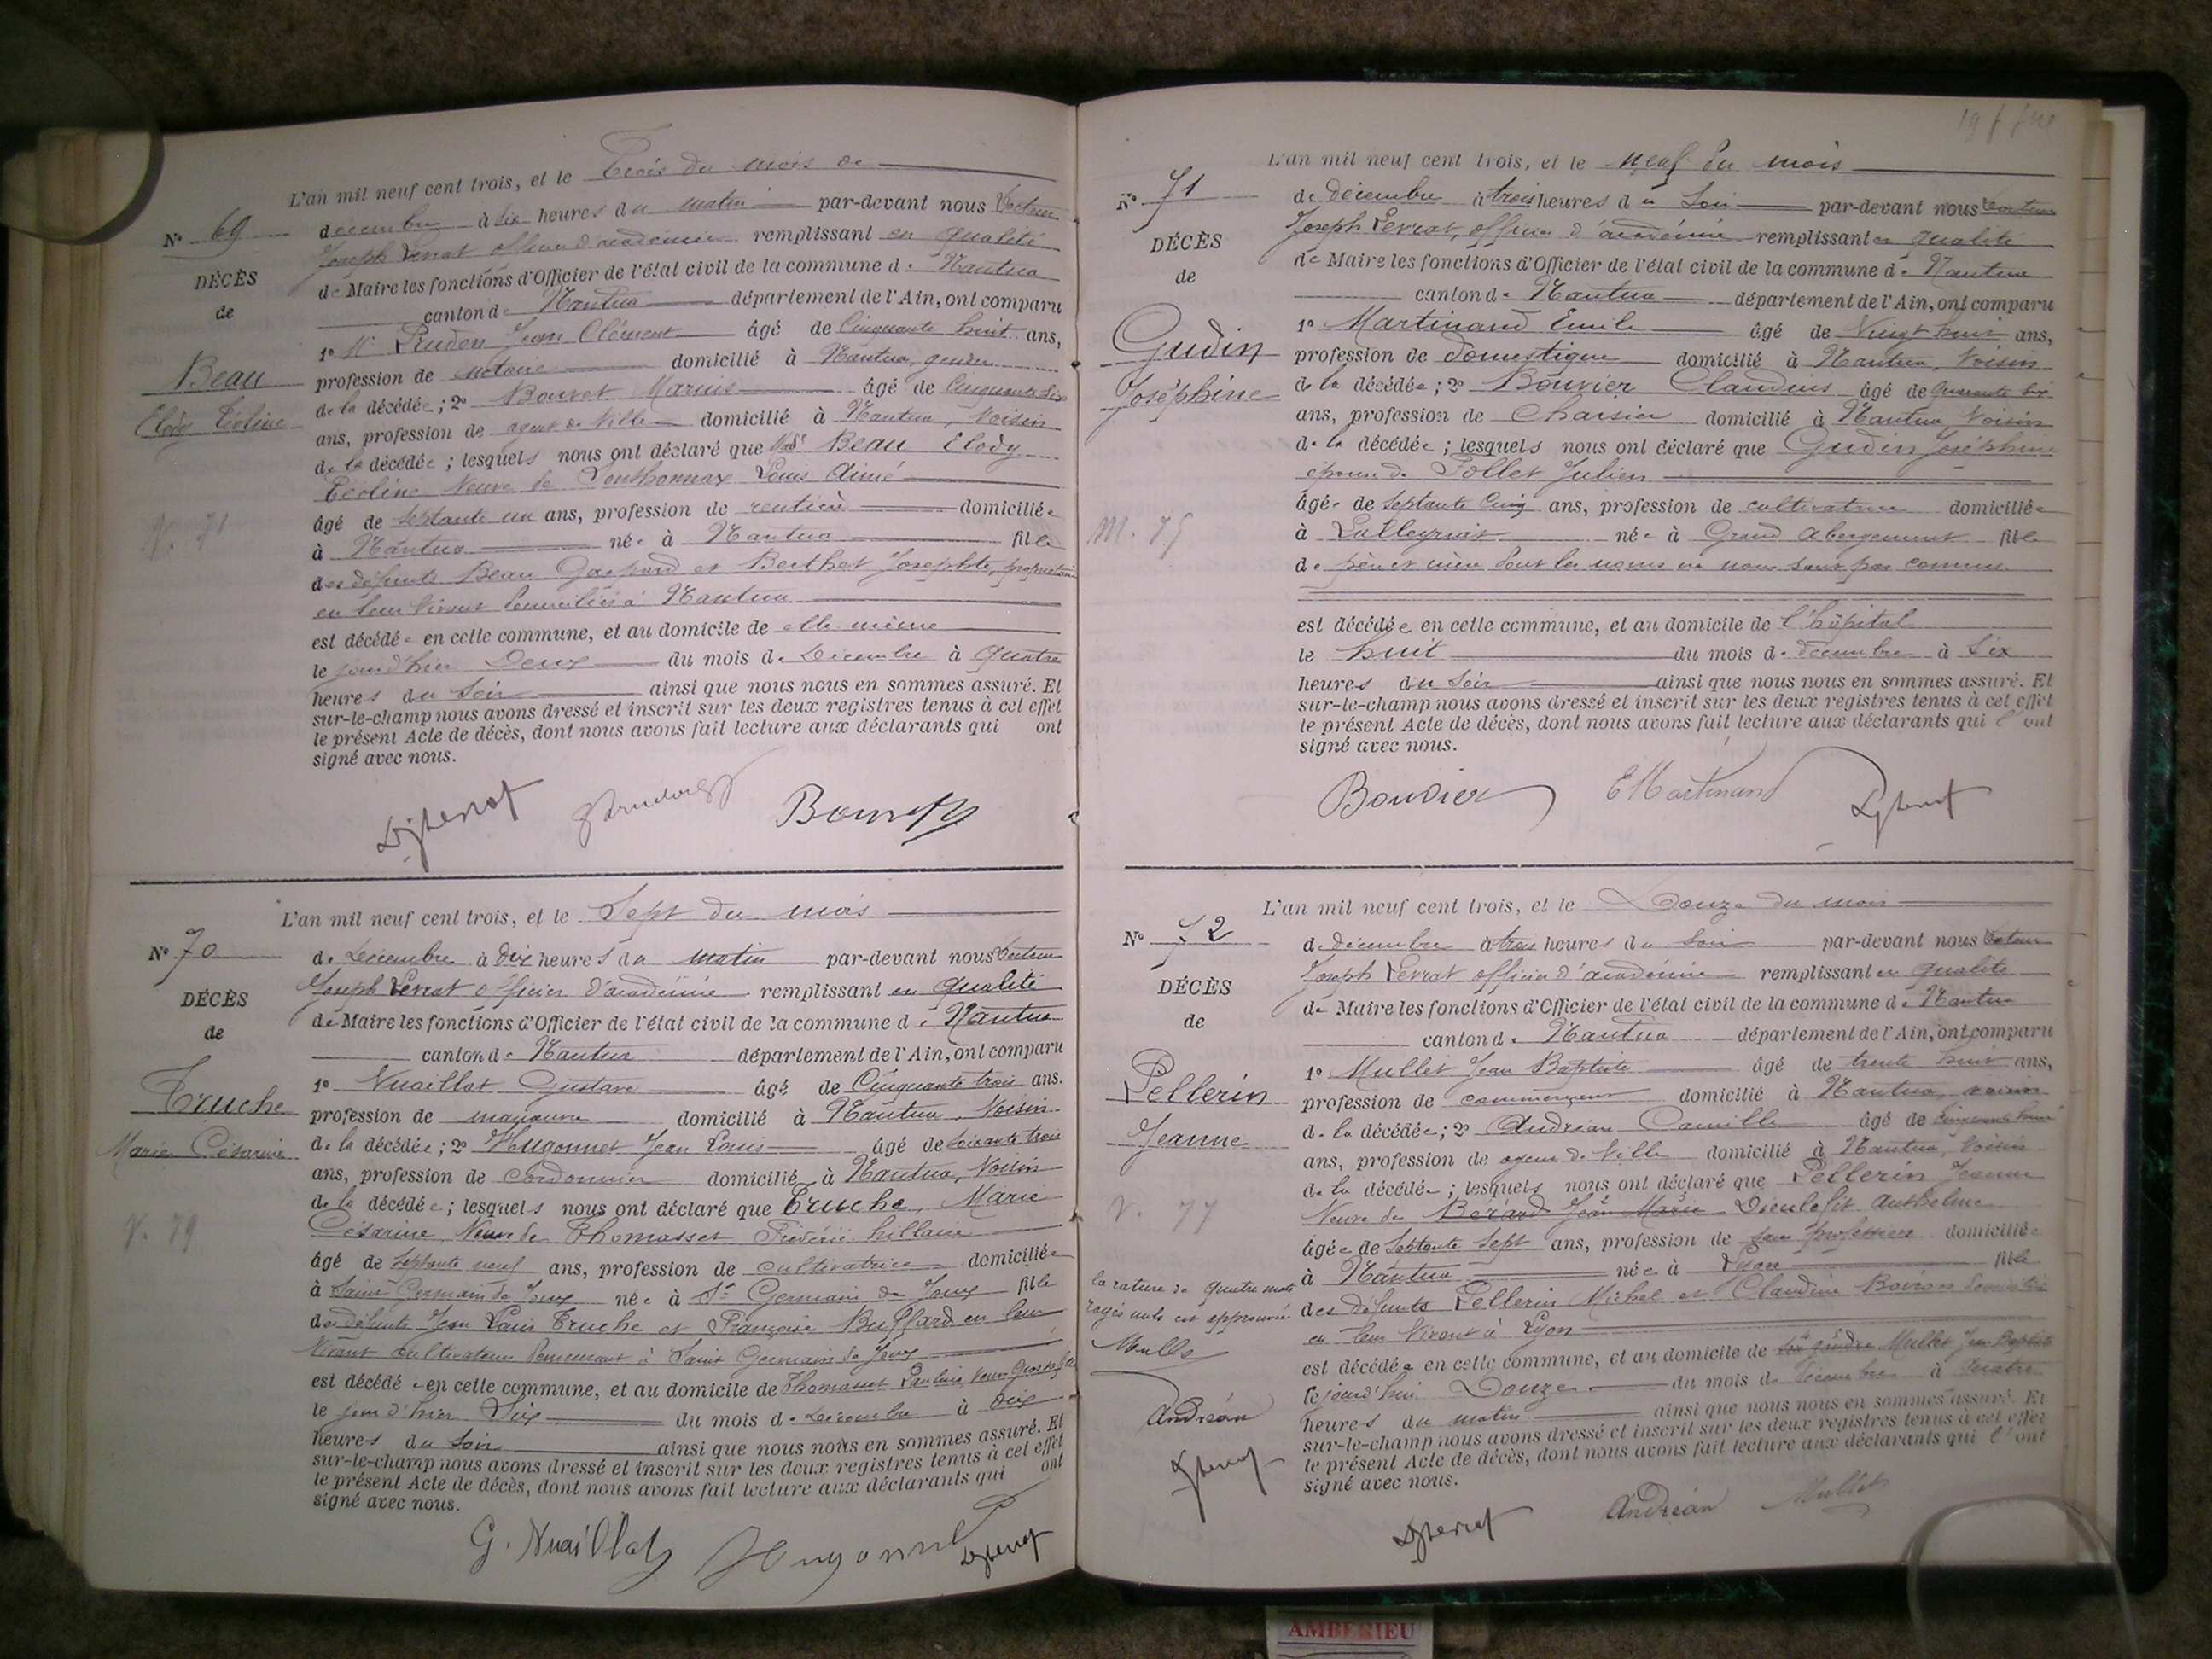 L'an mil neuf cent trois, et le Trois du mois de
N° 69
décembre à dix heures du matin par-devant nous Docteur
Joseph Levrat officier d'académie remplissant en qualité
de Maire les fonctions d'Officier de l'état civil de la commune de Nantua
canton de Nantua département de l'Ain, ont comparu
DÉCÈS
de
Beau
Elody Téoline
1° Mr Prudon Jean Clément âgé de Cinquante huit ans,
profession de notaire domicilié à Nantua, gendre
de la décédée; 2° Bouvet Marius âgé de Cinquante six
ans, profession de agent de Ville domicilié à Nantua, Voisin
de la décédée; lesquels nous ont déclaré que Beau Elody
Téoline Veuve de Louis Aimé
âgé de septante un ans, profession de rentière domiciliée
à Nantua née à Nantua fille
V. 71
des défunts Beau Gaspard et Berthet Josephte, propriétaires
en leur vivant domiciliés à Nantua
est décédée en cette commune, et au domicile de elle même
le jour d'hier Deux du mois de Décembre à quatre
heures du soir ainsi que nous nous en sommes assuré. Et
sur-le-champ nous avons dressé et inscrit sur les deux registres tenus à cet effet
le présent Acte de décès, dont nous avons fait lecture aux déclarants qui ont
signé avec nous.
L'an mil neuf cent trois, et le Sept du mois
N° 70
de Décembre à dix heures du matin par-devant nous Docteur
Joseph Levrat officier d'académie remplissant en qualité
de Maire les fonctions d'Officier de l'état civil de la commune de Nantua
canton de Nantua département de l'Ain, ont comparu
DÉCÈS
de
Truche
Marie Césarine
1° Nuaillat Gustave âgé de Cinquante trois ans.
profession de manœuvre domicilié à Nantua, Voisin
de la décédée; 2° Hugonnet Jean Louis âgé de soixante trois
ans, profession de Cordonnier domicilié à Nantua, Voisin
de la décédée; lesquels nous ont déclaré que Truche, Marie
Césarine, Veuve de Thomasset Frédéric hillaire
V. 79
âgé de septante neuf ans, profession de cultivatrice domiciliée
à Saint Germain de Joux née à St Germain de Joux fille
des défunts Jean Louis Truche et Françoise Buffard en leur
Vivant cultivateurs demeurant à Saint Germain de Joux
est décédée en cette commune, et au domicile de Thomasset
le jour d'hier Six du mois de Décembre à dix
heures du soir ainsi que nous nous en sommes assuré. Et
sur-le-champ nous avons dressé et inscrit sur les deux registres tenus à cet effet
le présent Acte de décès, dont nous avons fait lecture aux déclarants qui ont
signé avec nous.
G. Nuaillat
L'an mil neuf cent trois, et le neuf du mois
N° 71
de décembre à trois heures du Soir par-devant nous Docteur
Joseph Levrat, officier d'académie remplissant en qualité
de Maire les fonctions d'Officier de l'état civil de la commune de Nantua
canton de Nantua département de l'Ain, ont comparu
DÉCÈS
de
Gudin
Joséphine
1° Martinand Emile âgé de Vingt huit ans,
profession de domestique domicilié à Nantua, Voisin
de la décédée; 2° Bouvier Claudius âgé de quarante six
ans, profession de domicilié à Nantua, Voisin
de la décédée; lesquels nous ont déclaré que Gudin Joséphine
épouse de Pollet Julien
âgée de septante cinq ans, profession de cultivatrice domiciliée
M. 75
à Lalleyriat née à Grand Abergement fille
de père et mère dont les noms ne nous sont pas connus
est décédée en cette commune, et au domicile de l'hôpital
le huit du mois de décembre à Six
heures du soir ainsi que nous nous en sommes assuré. Et
sur-le-champ nous avons dressé et inscrit sur les deux registres tenus à cet effet
le présent Acte de décès, dont nous avons fait lecture aux déclarants qui l'ont
signé avec nous.
Bouvier E Martinand
L'an mil neuf cent trois, et le Douze du mois
N° 72
de décembre à trois heures du Soir par-devant nous Docteur
Joseph Levrat officier d'académie remplissant en qualité
de Maire les fonctions d'Officier de l'état civil de la commune de Nantua
canton de Nantua département de l'Ain, ont comparu
DÉCÈS
de
Pellerin
Jeanne
1° Mullet Jean Baptiste âgé de trente huit ans,
profession de commerçant domicilié à Nantua, voisin
de la décédée; 2° Andréan Camille âgé de
ans, profession de agent de Ville domicilié à Nantua, Voisin
de la décédée; lesquels nous ont déclaré que Pellerin Jeanne
V. 77
Veuve de Bérard Jean Marie Dieulefit Anthelme
âgée de septante sept ans, profession de sans profession domiciliée
à Nantua née à Lyon fille
des défunts Pellerin Michel et Claudine Boiron domiciliés
en leur Vivant à Lyon
la rature de quatre mots
rayés nuls est approuvée
Mullet
Andréan
est décédée en cette commune, et au domicile de son gendre Mullet Jean Baptiste
le jourd'hui Douze du mois de Décembre à quatre
heures du matin ainsi que nous nous en sommes assuré. Et
sur-le-champ nous avons dressé et inscrit sur les deux registres tenus à cet effet
le présent Acte de décès, dont nous avons fait lecture aux déclarants qui l'ont
signé avec nous.
Andréan Mullet
AMBERIEU